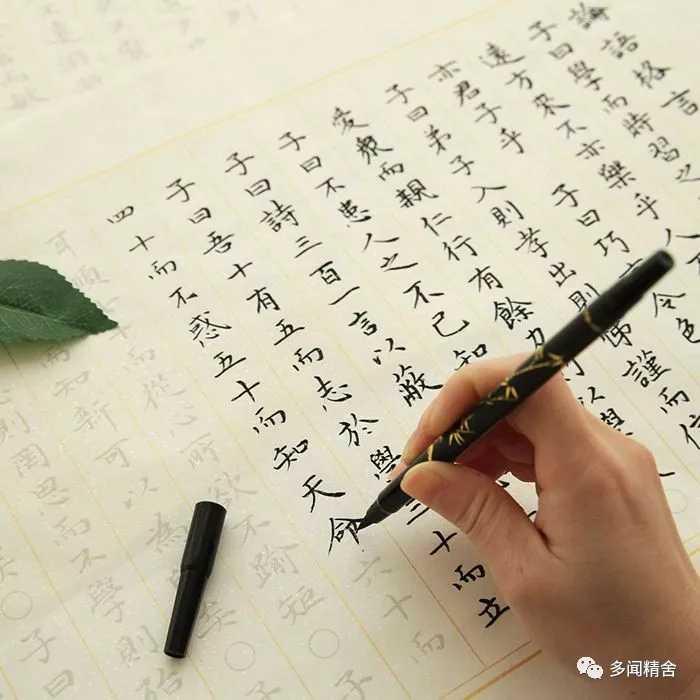 論語格言
子曰學而時習之
遠方來不亦樂乎人不
亦君子乎 子曰巧言令色
子曰弟子入則孝出則悌謹而信
愛衆而親仁行有餘力以學
子曰不患人之不己知
子曰詩三百一言以蔽
子曰吾十有五而志於學三十而立
四十而不惑五十而知天命六十而
順十而從心所欲不踰矩○子
而知新可以為矣○
則罔思而不學則殆
○子曰
多闻精舍